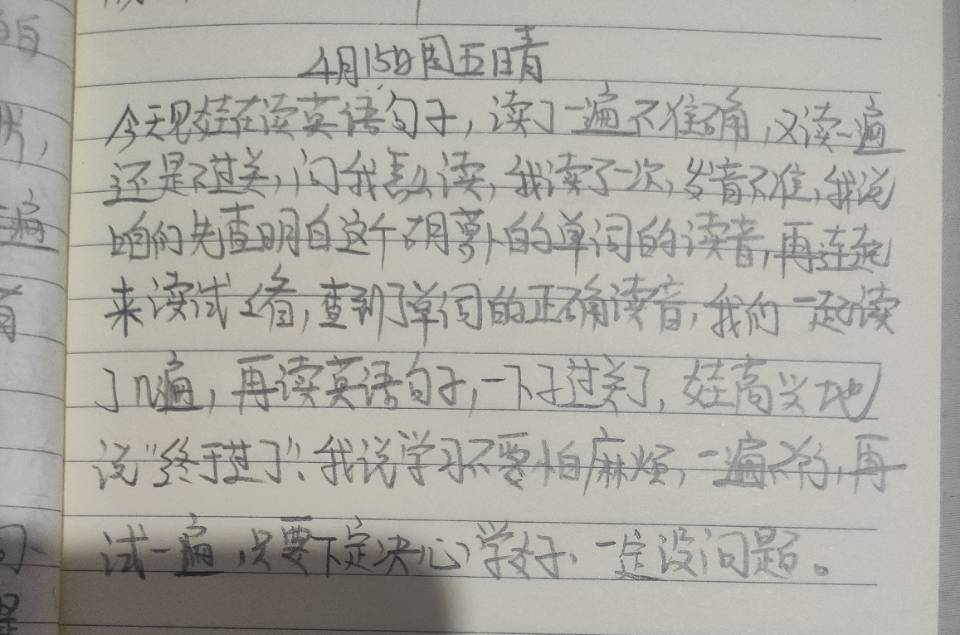 4月15日周五晴
今天见娃在读英语句子，读了一遍不准确，又读一遍
还是不过关，问我怎么读，我读了一次，发音不准，我说
咱们先查明白这个胡萝卜的单词的读音，再连起
来读试试看，查到了单词的正确读音，我们一起读
了几遍，再读英语句子，一下子过关了，娃高兴地
说“终于过了”，我说学习不要怕麻烦，一遍不行，再
试一遍，只要下定决心学好，一定没问题。